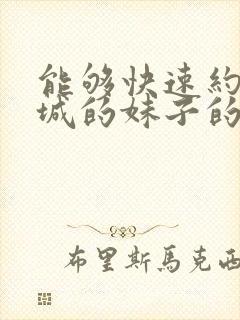 能够快速約
城的妹子的
布里斯馬克西